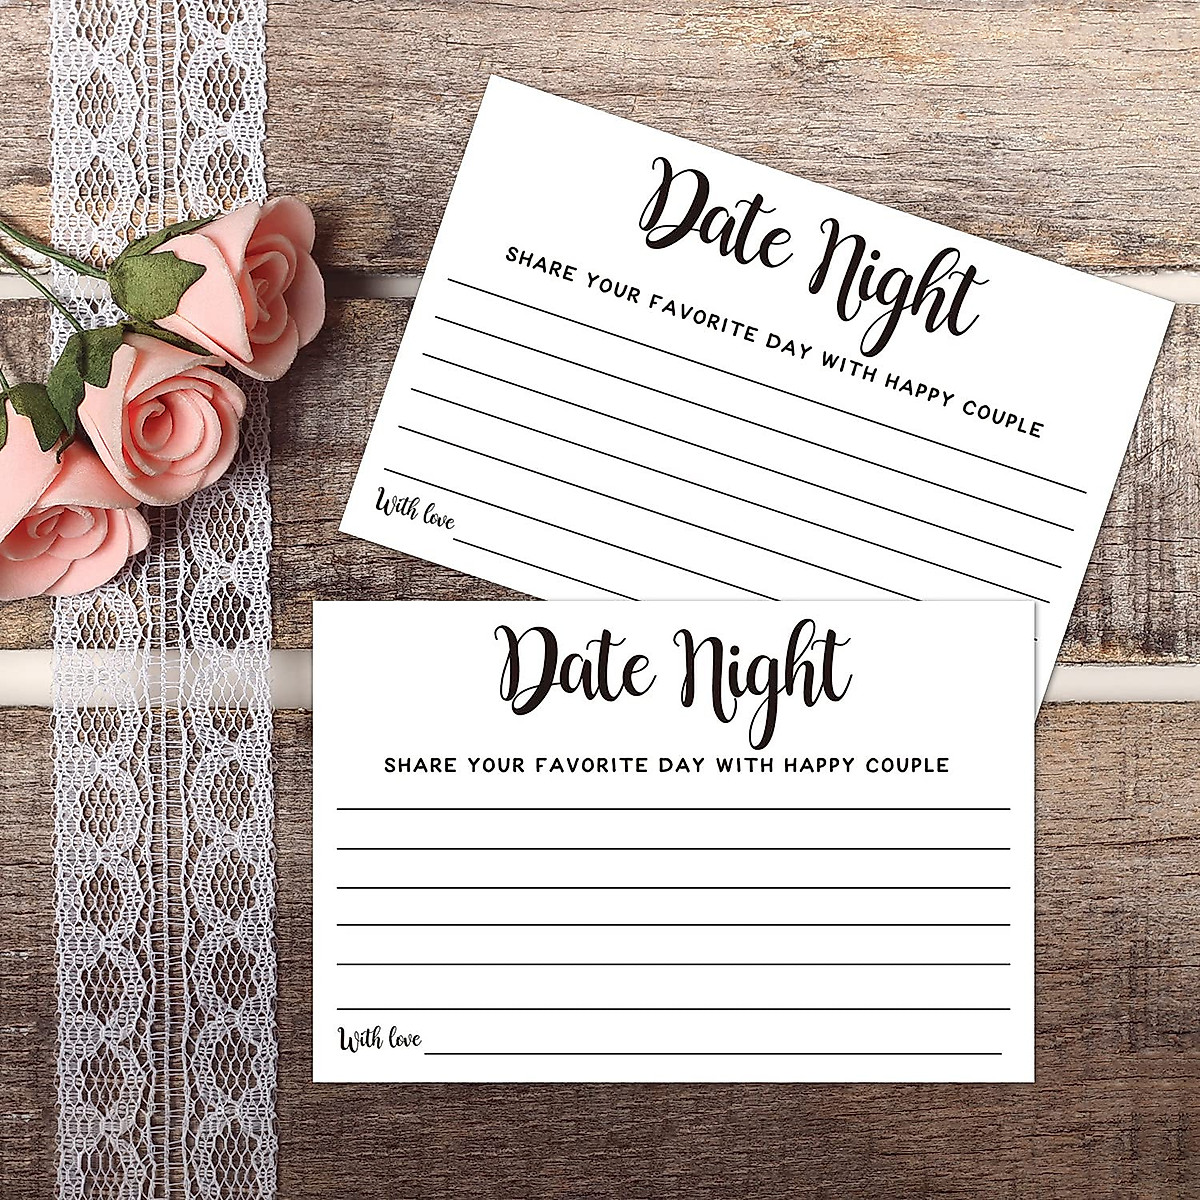 Date Night
SHARE YOUR FAVORITE DAY WITH HAPPY COUPLE
With love
Date Night
SHARE YOUR FAVORITE DAY WITH HAPPY COUPLE
With love